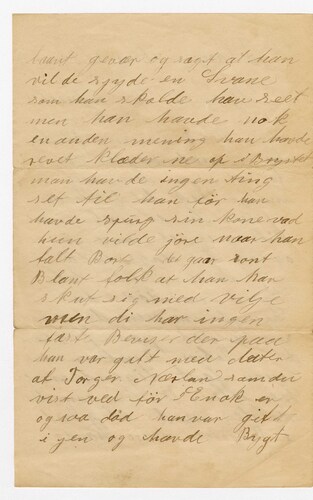 hant gevær og sagt at han
vilde sjyde en Svane
som han skolde have seet
men han havde nok
en anden mening han havde
revet klæder ne op i brystet
man havde ingen ting
set til han før han
havde spurg sin kone vad
hun vilde jøre naar han
falt Bort det gaar ront
Blant folk at han har
skut sig med vilje
men di har ingen
faste Beviser der paa
han var gift med dater
at Torger Nærlan som du
vist ved før Enok er
ogsaa død han var gift
igen og havde Bygt